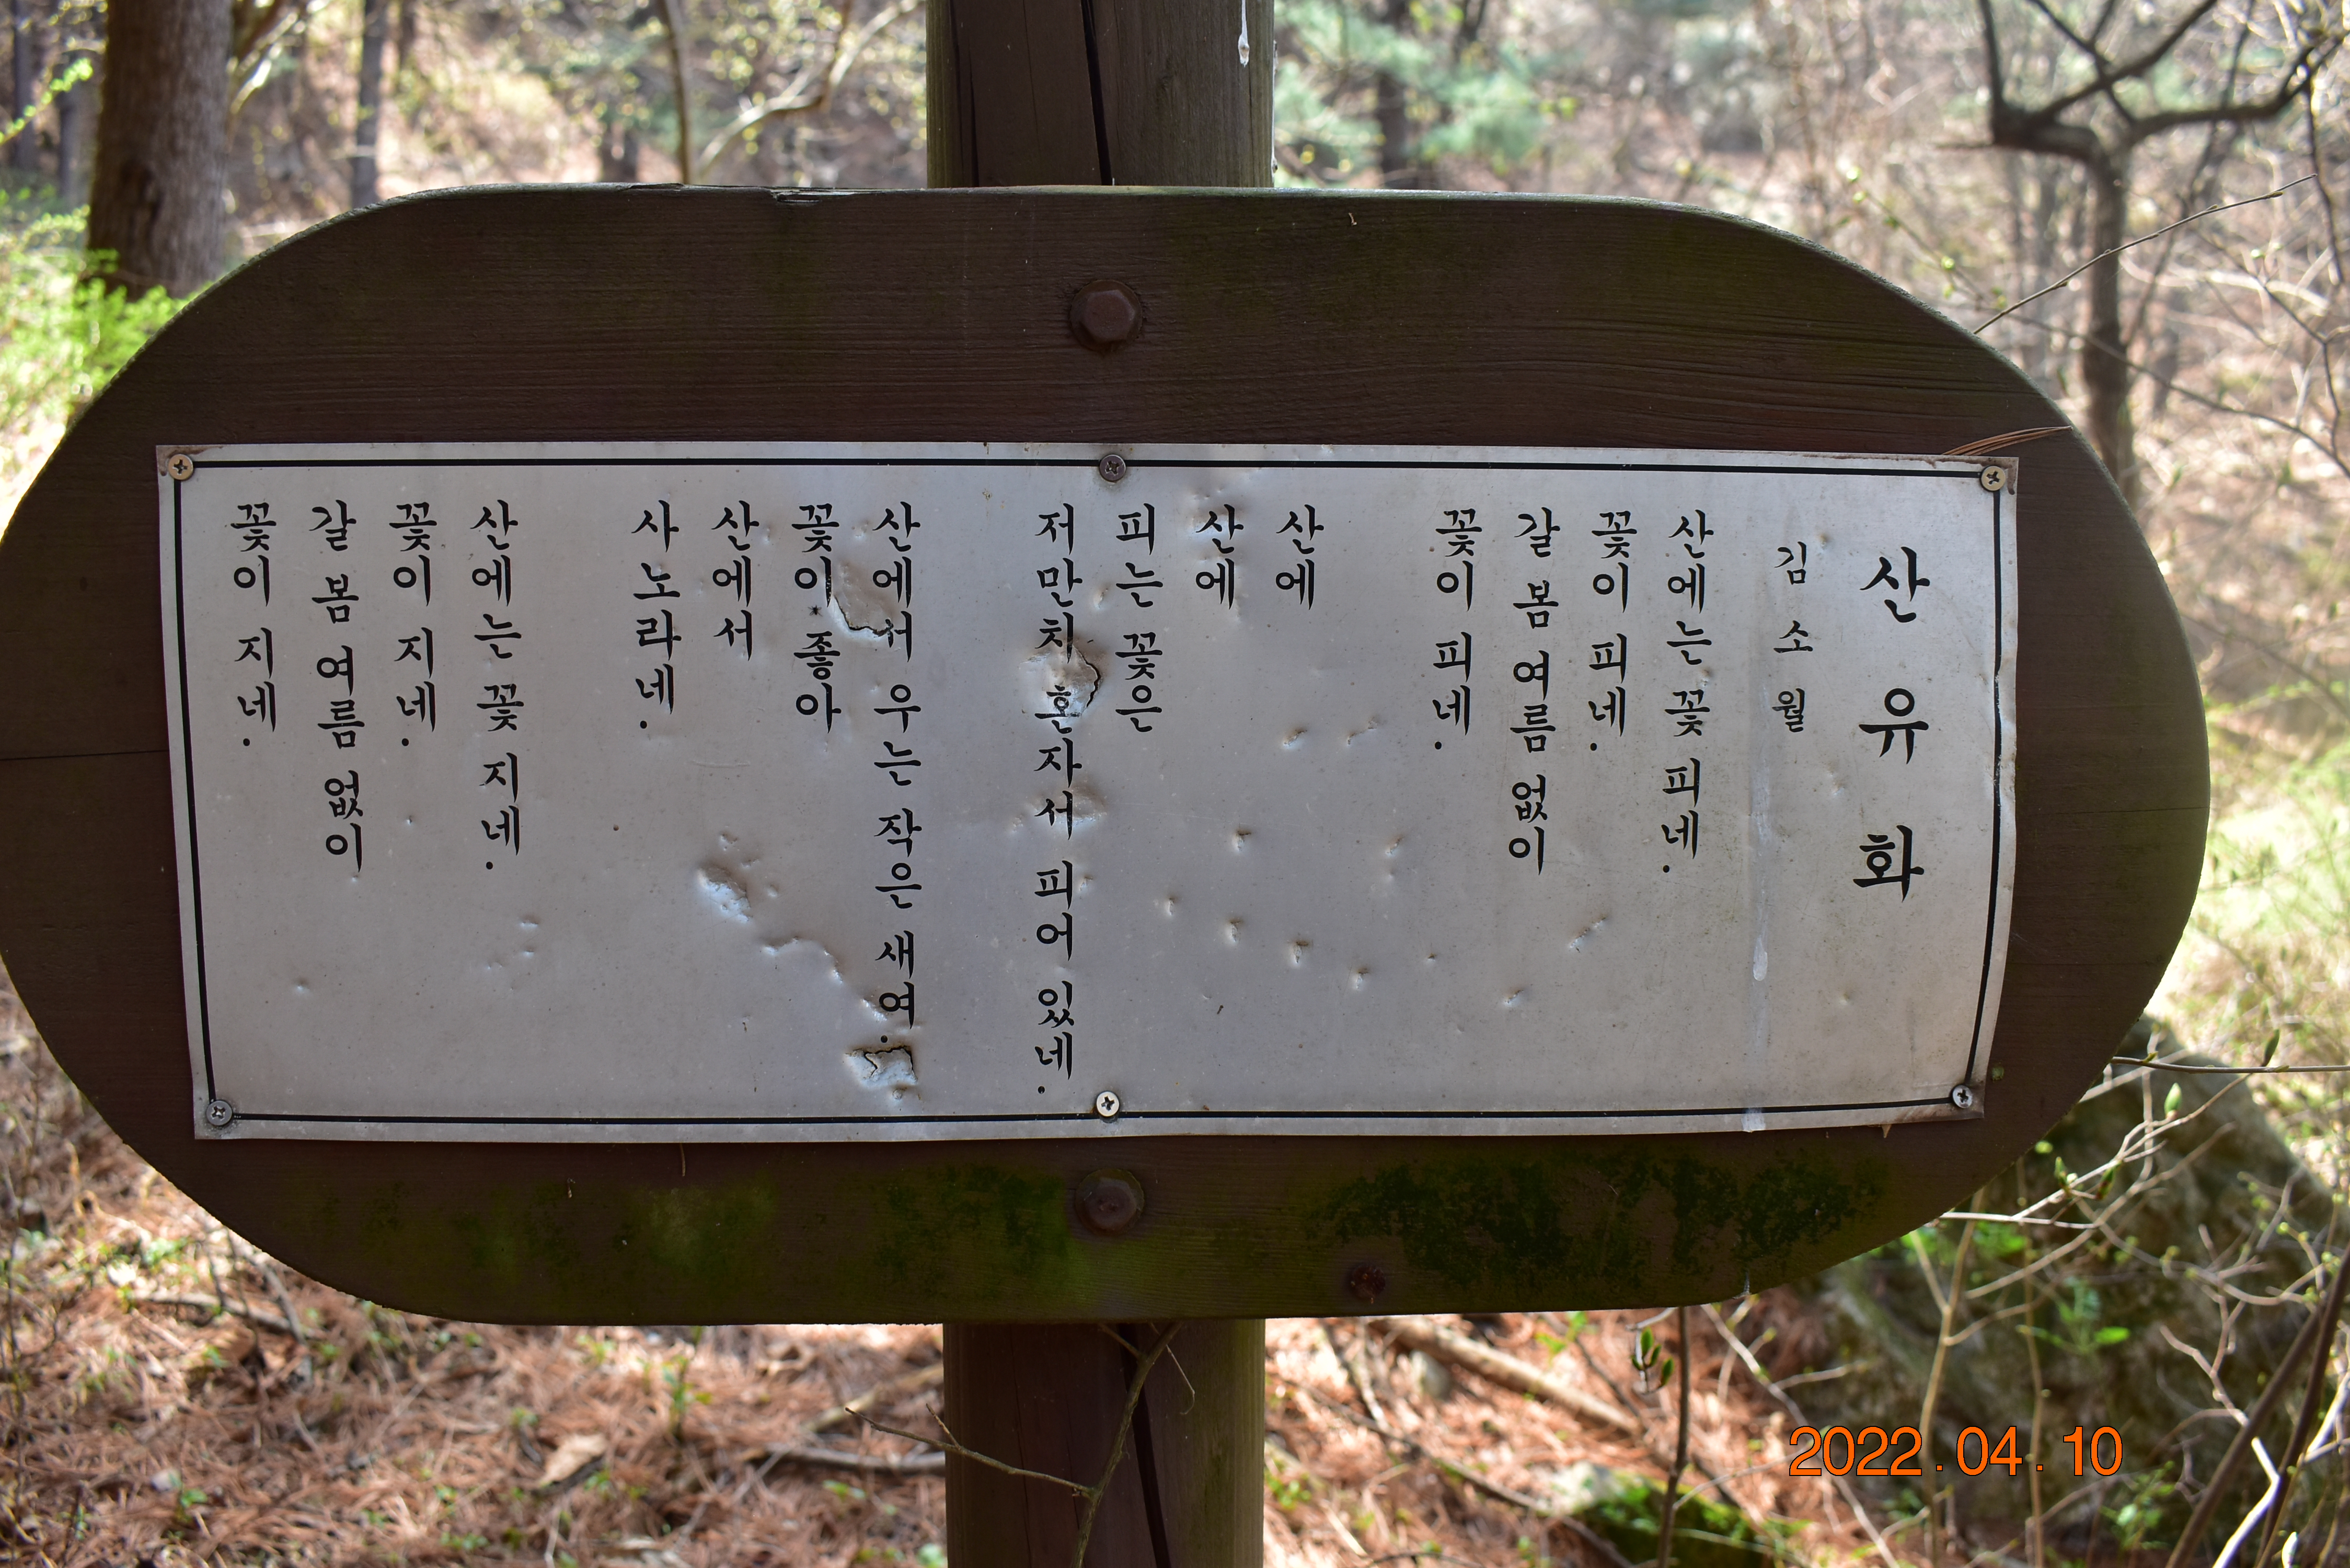 산유화
김소월
산에는 꽃 피네.
꽃이 피네.
갈 봄 여름 없이
꽃이 피네.
산에
산에
피는 꽃은
저만치 혼자서 피어 있네.
산에서 우는 작은 새여.
꽃이 좋아
산에서
사노라네.
산에는 꽃 지네.
꽃이 지네.
갈 봄 여름 없이
꽃이 지네.
2022.04.10